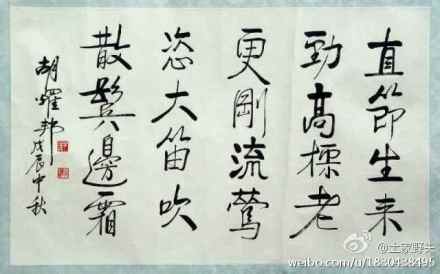 直節生来
勁高標老
更剛流鶯
恣大笛吹
散鬢邊霜
胡耀邦戊辰中秋
@土家野夫
weibo.com/u/1830438495